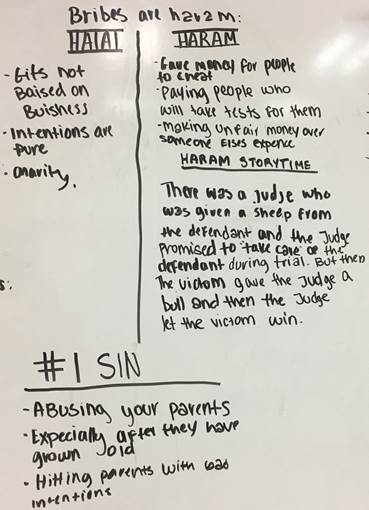 Bribes are haram:
HALAL
- Gifs not
Baised on
Buishess
- Intentions are
pure
- Charity.
HARAM
- Gave money for people
to cheat
- Paying people who
will take tests for them
- Making unfair money over
someone Elses expence
HARAM STORYTIME
There was a Judje who
was given a sheep from
the defendant and the Judge
promised to take care of the
defendant during trial. But then
The victom gave the Judge a
bull and then the Judge
let the victom win.
s:
#1 SIN
- Abusing your parents
- Expecially after they have
grown old
- Hitting parents with bad
intentions